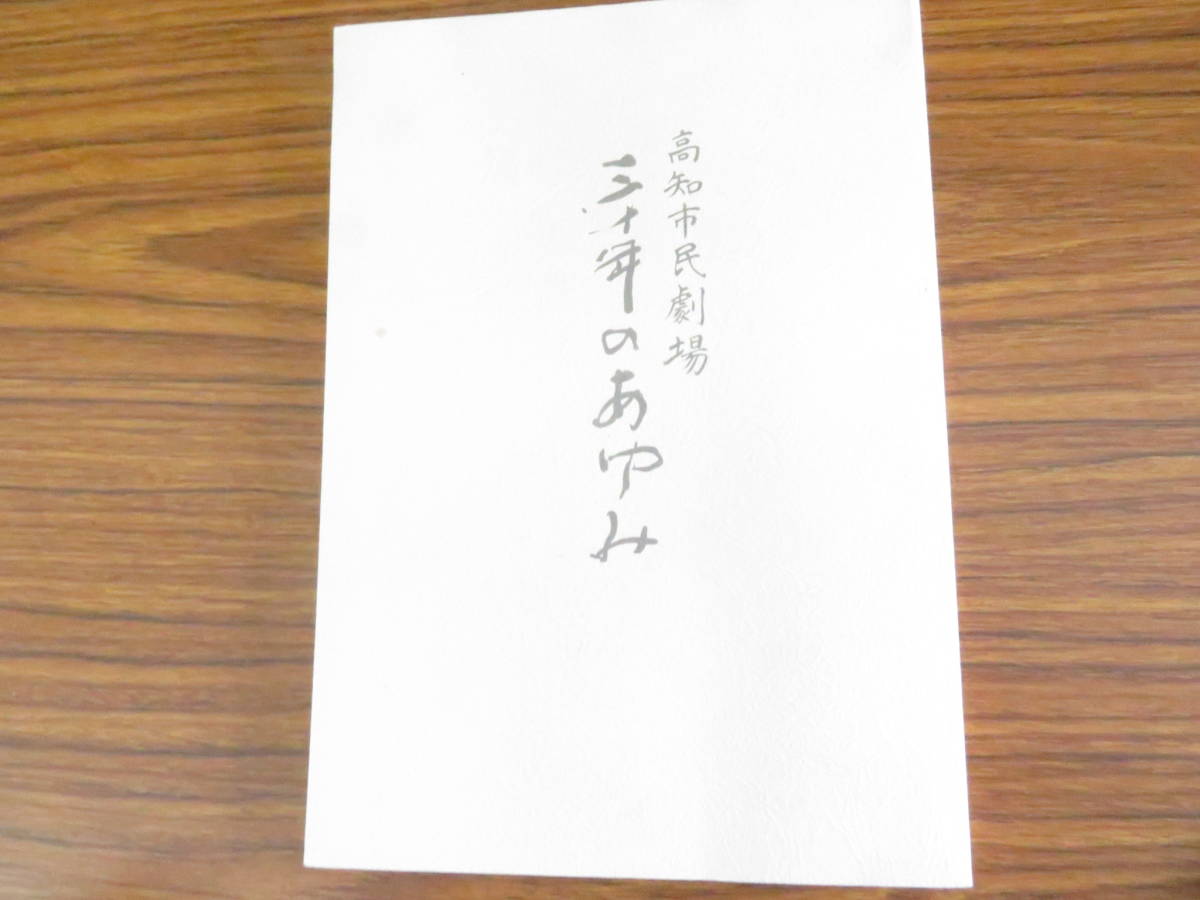 高知市民劇場
三十年のあゆみ